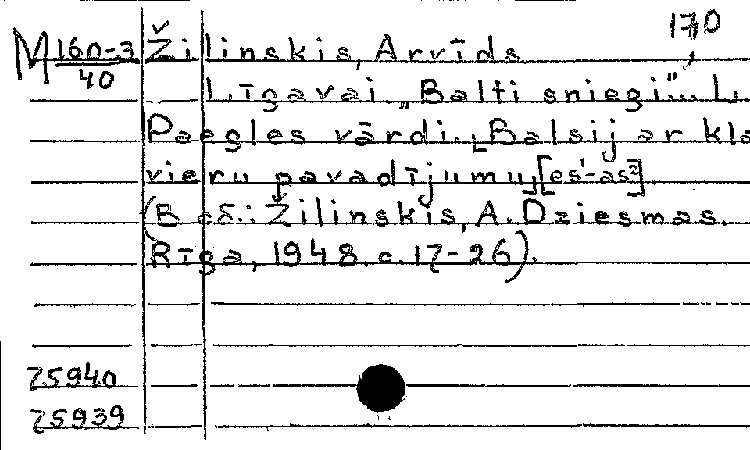 170
M 160-3/40 Žilinskis, Arvīds
Līgavai „Balti sniegi"... L.
Paegles vārdi. [Balsij ar kla
vieru pavadījumu] [es¹-as²]
(В сб.: Žilinskis, A. Dziesmas.
Rīga, 1948. с. 17-26).
75940
75939